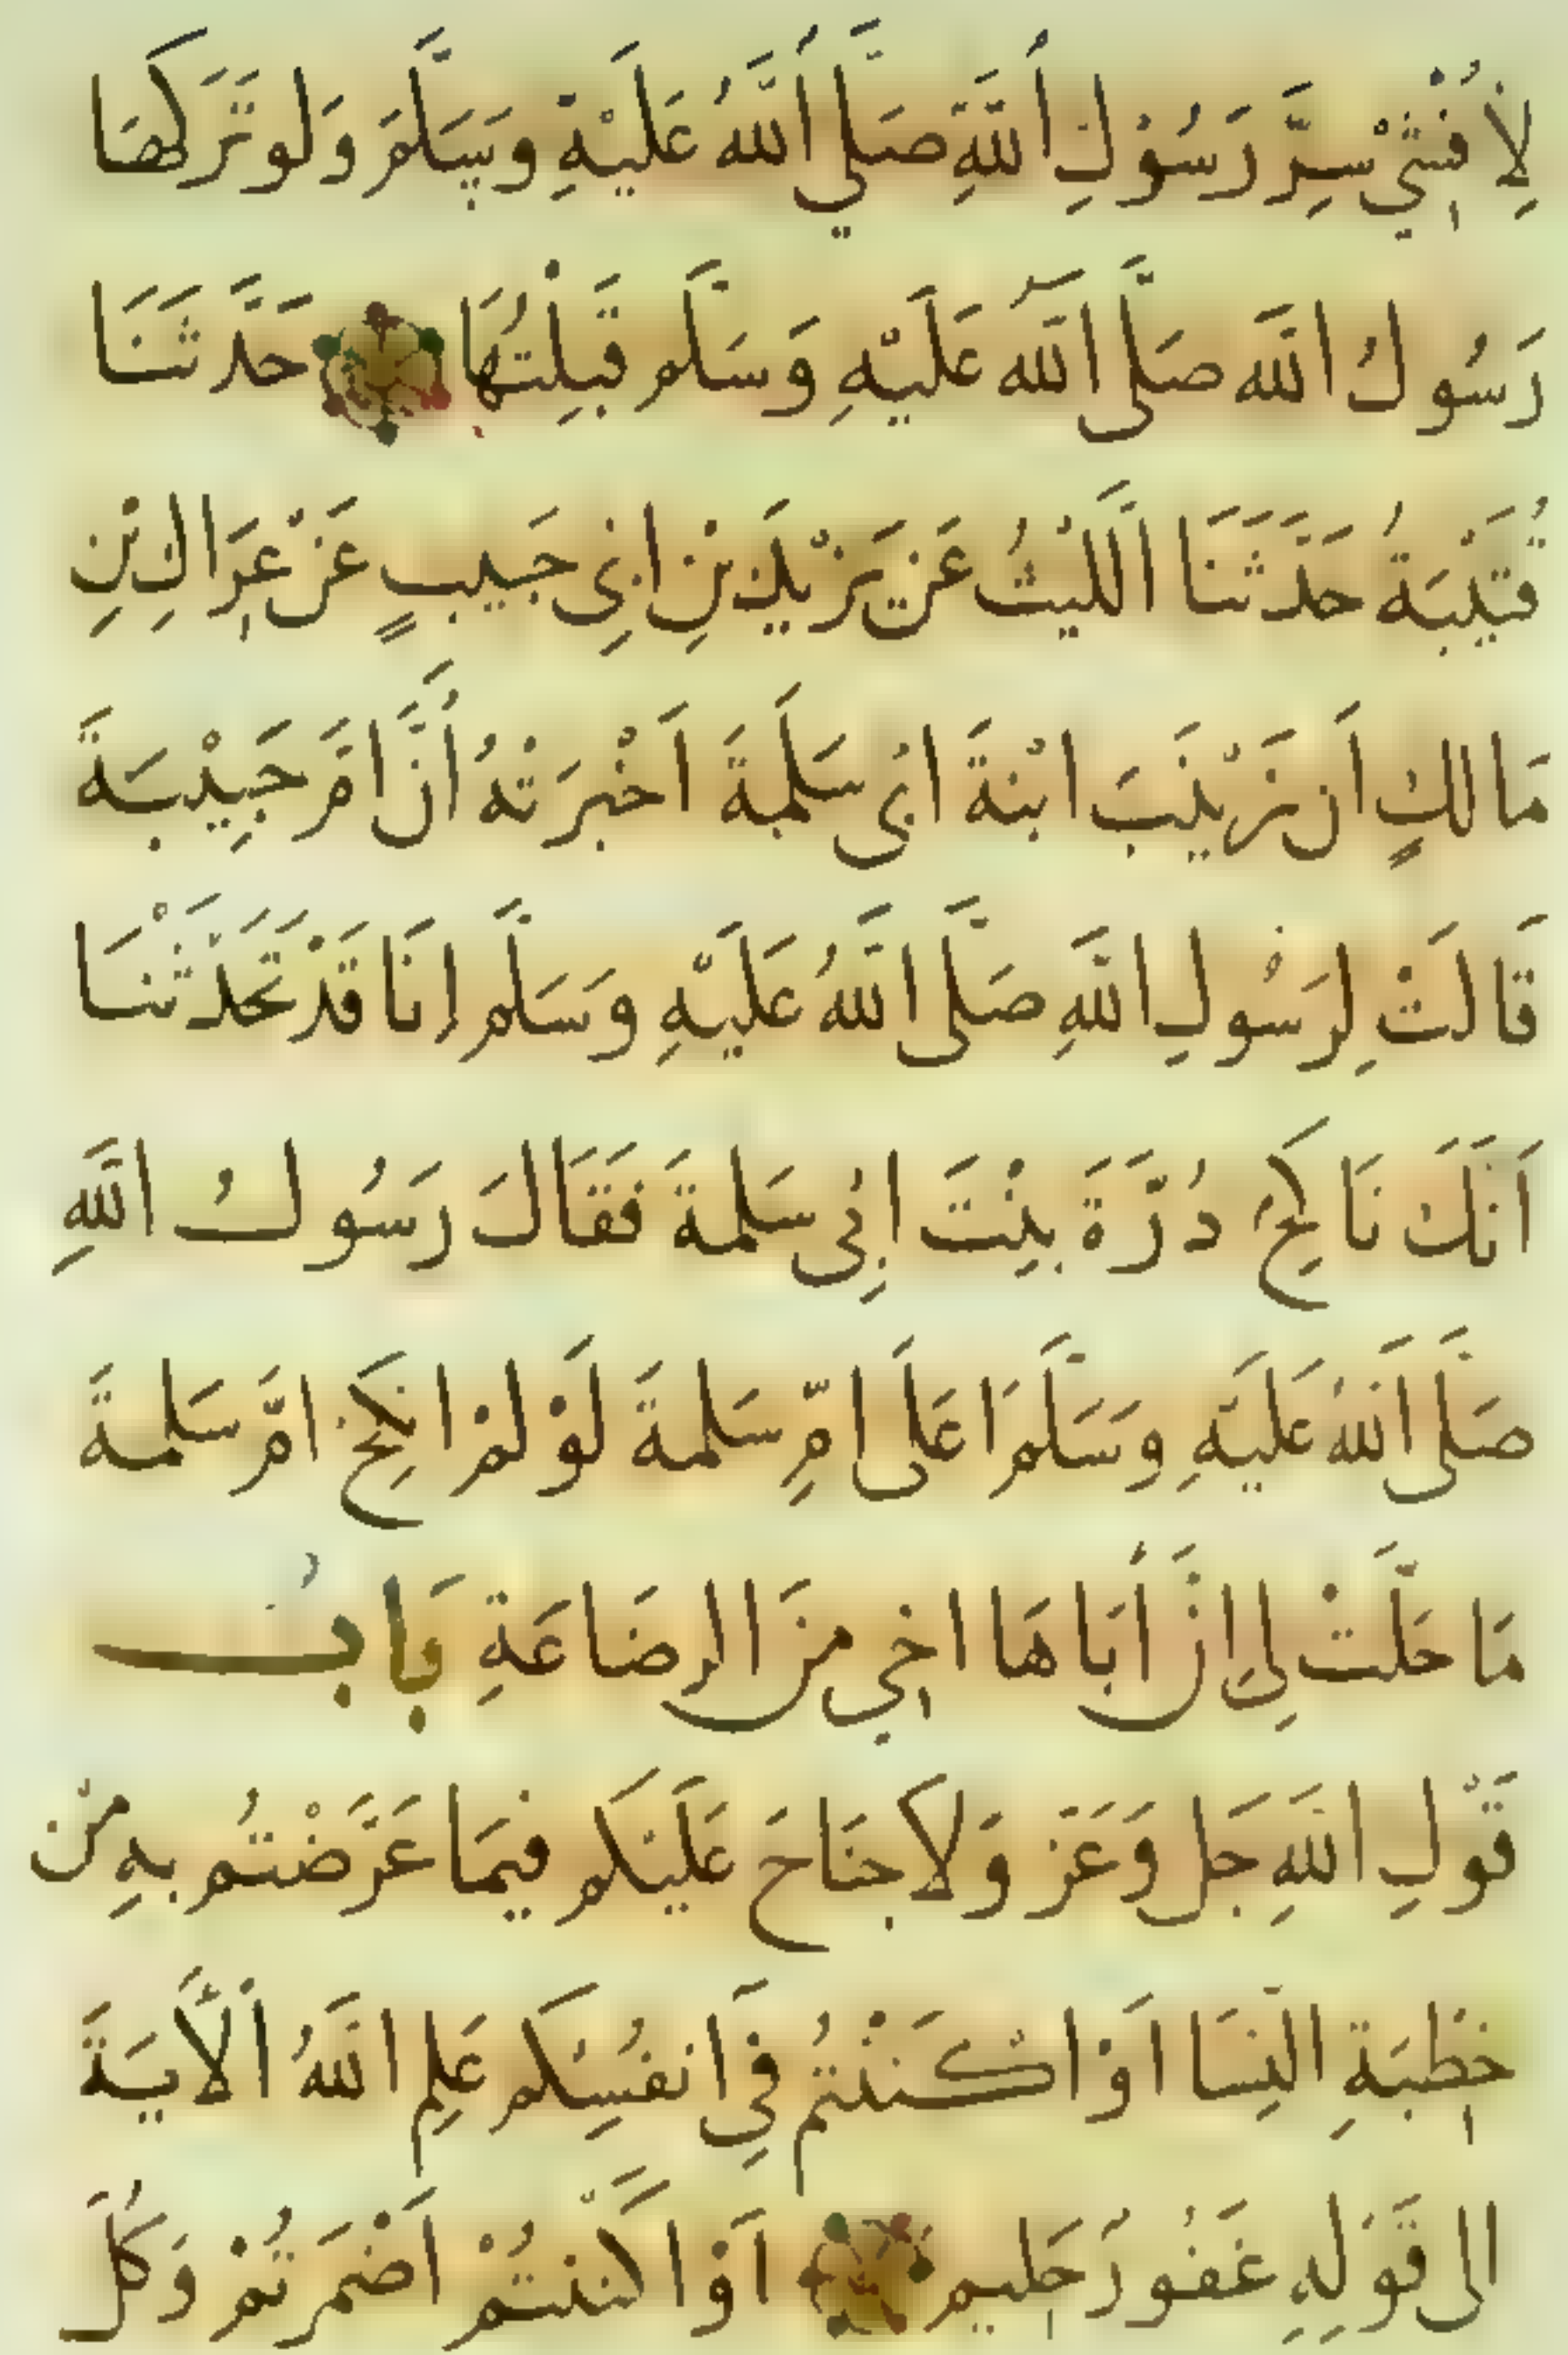 لِأُفْشِيَ سِرَّ رَسُوْلِ أللَّهِ صَلَّي أللَّهُ عَلَيْهِ وَسَلَّمَ وَلَو تَرَكَهَا
رَسُولُ اللَّه صَلَّى اللَّه عَلَيْهِ وَسَلَّم قَبِلْتُهَا حَدَّثَنَا
قُتَيْبَةُ حَدَّثَنَا اللَّيْثُ عَن يَزِيْدَ بْنِ ابِى حَبِيبٍ عَنْ عِرَاكِ بْنِ
مَالكٍ اَن زَيْنَبَ ابْنةَ ابى سَلَمةَ اَخْبرَتْهُ أَنَّ امَّ حَبِيْبَةَ
قَالَتْ لِرَسُولِ اللَّهِ صَلَّى اللَّهُ عَلَيْهِ وَسَلَّم اِنَا قَدْ تَحَدَّثْنَا
اَنَّكَ نَاكِحٌ دُرَّةَ بِنْتَ ابِى سَلمةَ فَقَالَ رَسُولُ اللَّهِ
صَلَّى اللَّهُ عَلَيْهِ وَسَلَّمَ اَعَلَى امِّ سَلمةَ لَوْ لمْ انكِحْ امَّ سَلمةَ
مَا حَلَّتْ لِى اِنَّ أَبَاهَا اخِي مِنَ الرضَاعَةِ بَابُ
قَوْلِ اللَّهِ جَل وَعَز وَلا جنَاحَ عَلَيْكم فِيمَا عَرَّضْتُم بهِ مِنْ
خِطْبَةِ النِّسَا اَوْ اكْنَنْتُمْ فِي اَنفُسِكم عَلِمَ اللَّهُ اَلْأَيَةَ
الى قَوْلِهِ غَفُورٌ حَلِيم اَوْ اكْنَنتُمْ اَضْمَرتُمْ وَكُلُّ